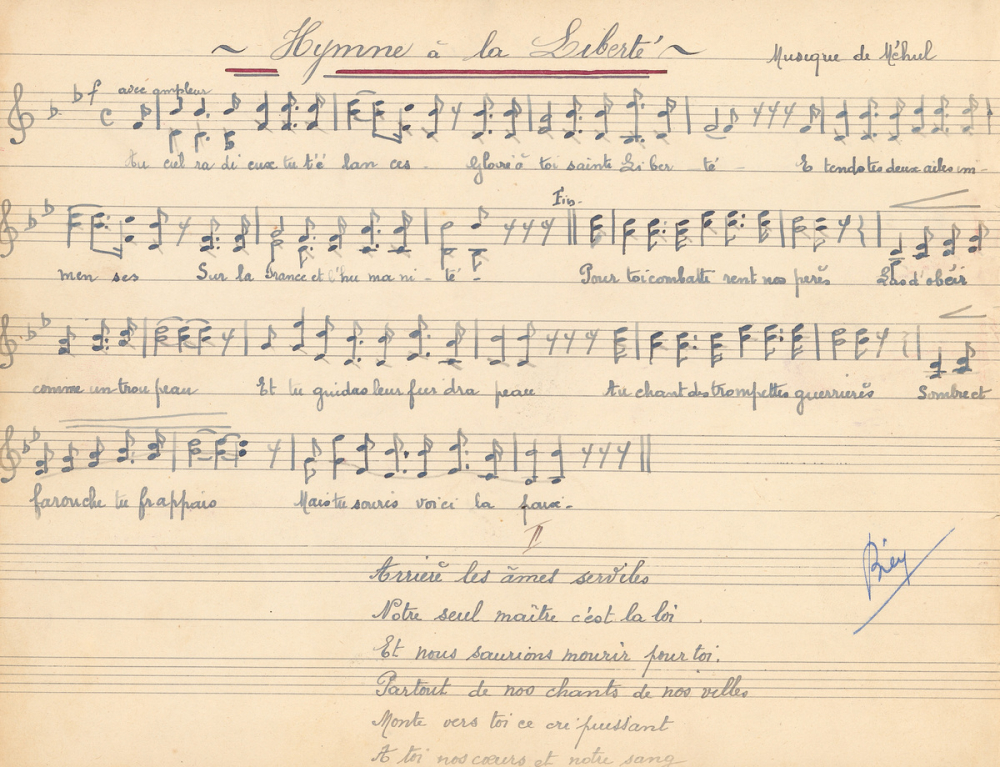 ~ Hymne à la Liberté ~
Musique de Méhul
f avec ampleur
Au ciel ra di eux tu t'é lan ces - Gloire à toi sainte Li ber té - E tends tes deux ailes im-
Fin-
men ses Sur la France et l'hu ma ni - té - Pour toi combatti rent nos perès Las d'obéir
comme un trou peau Et tu guidas leur fier dra peau Au chant des trompettes guerrierès Sombre et
farouche tu frappais Mais tu souris voi ci la paix -
II
Arrierè les âmes serviles
Notre seul maître c'est la loi .
Et nous saurions mourir pour toi.
Partout de nos chants de nos villes
Monte vers toi ce cri puissant
A toi nos cœurs et notre sang